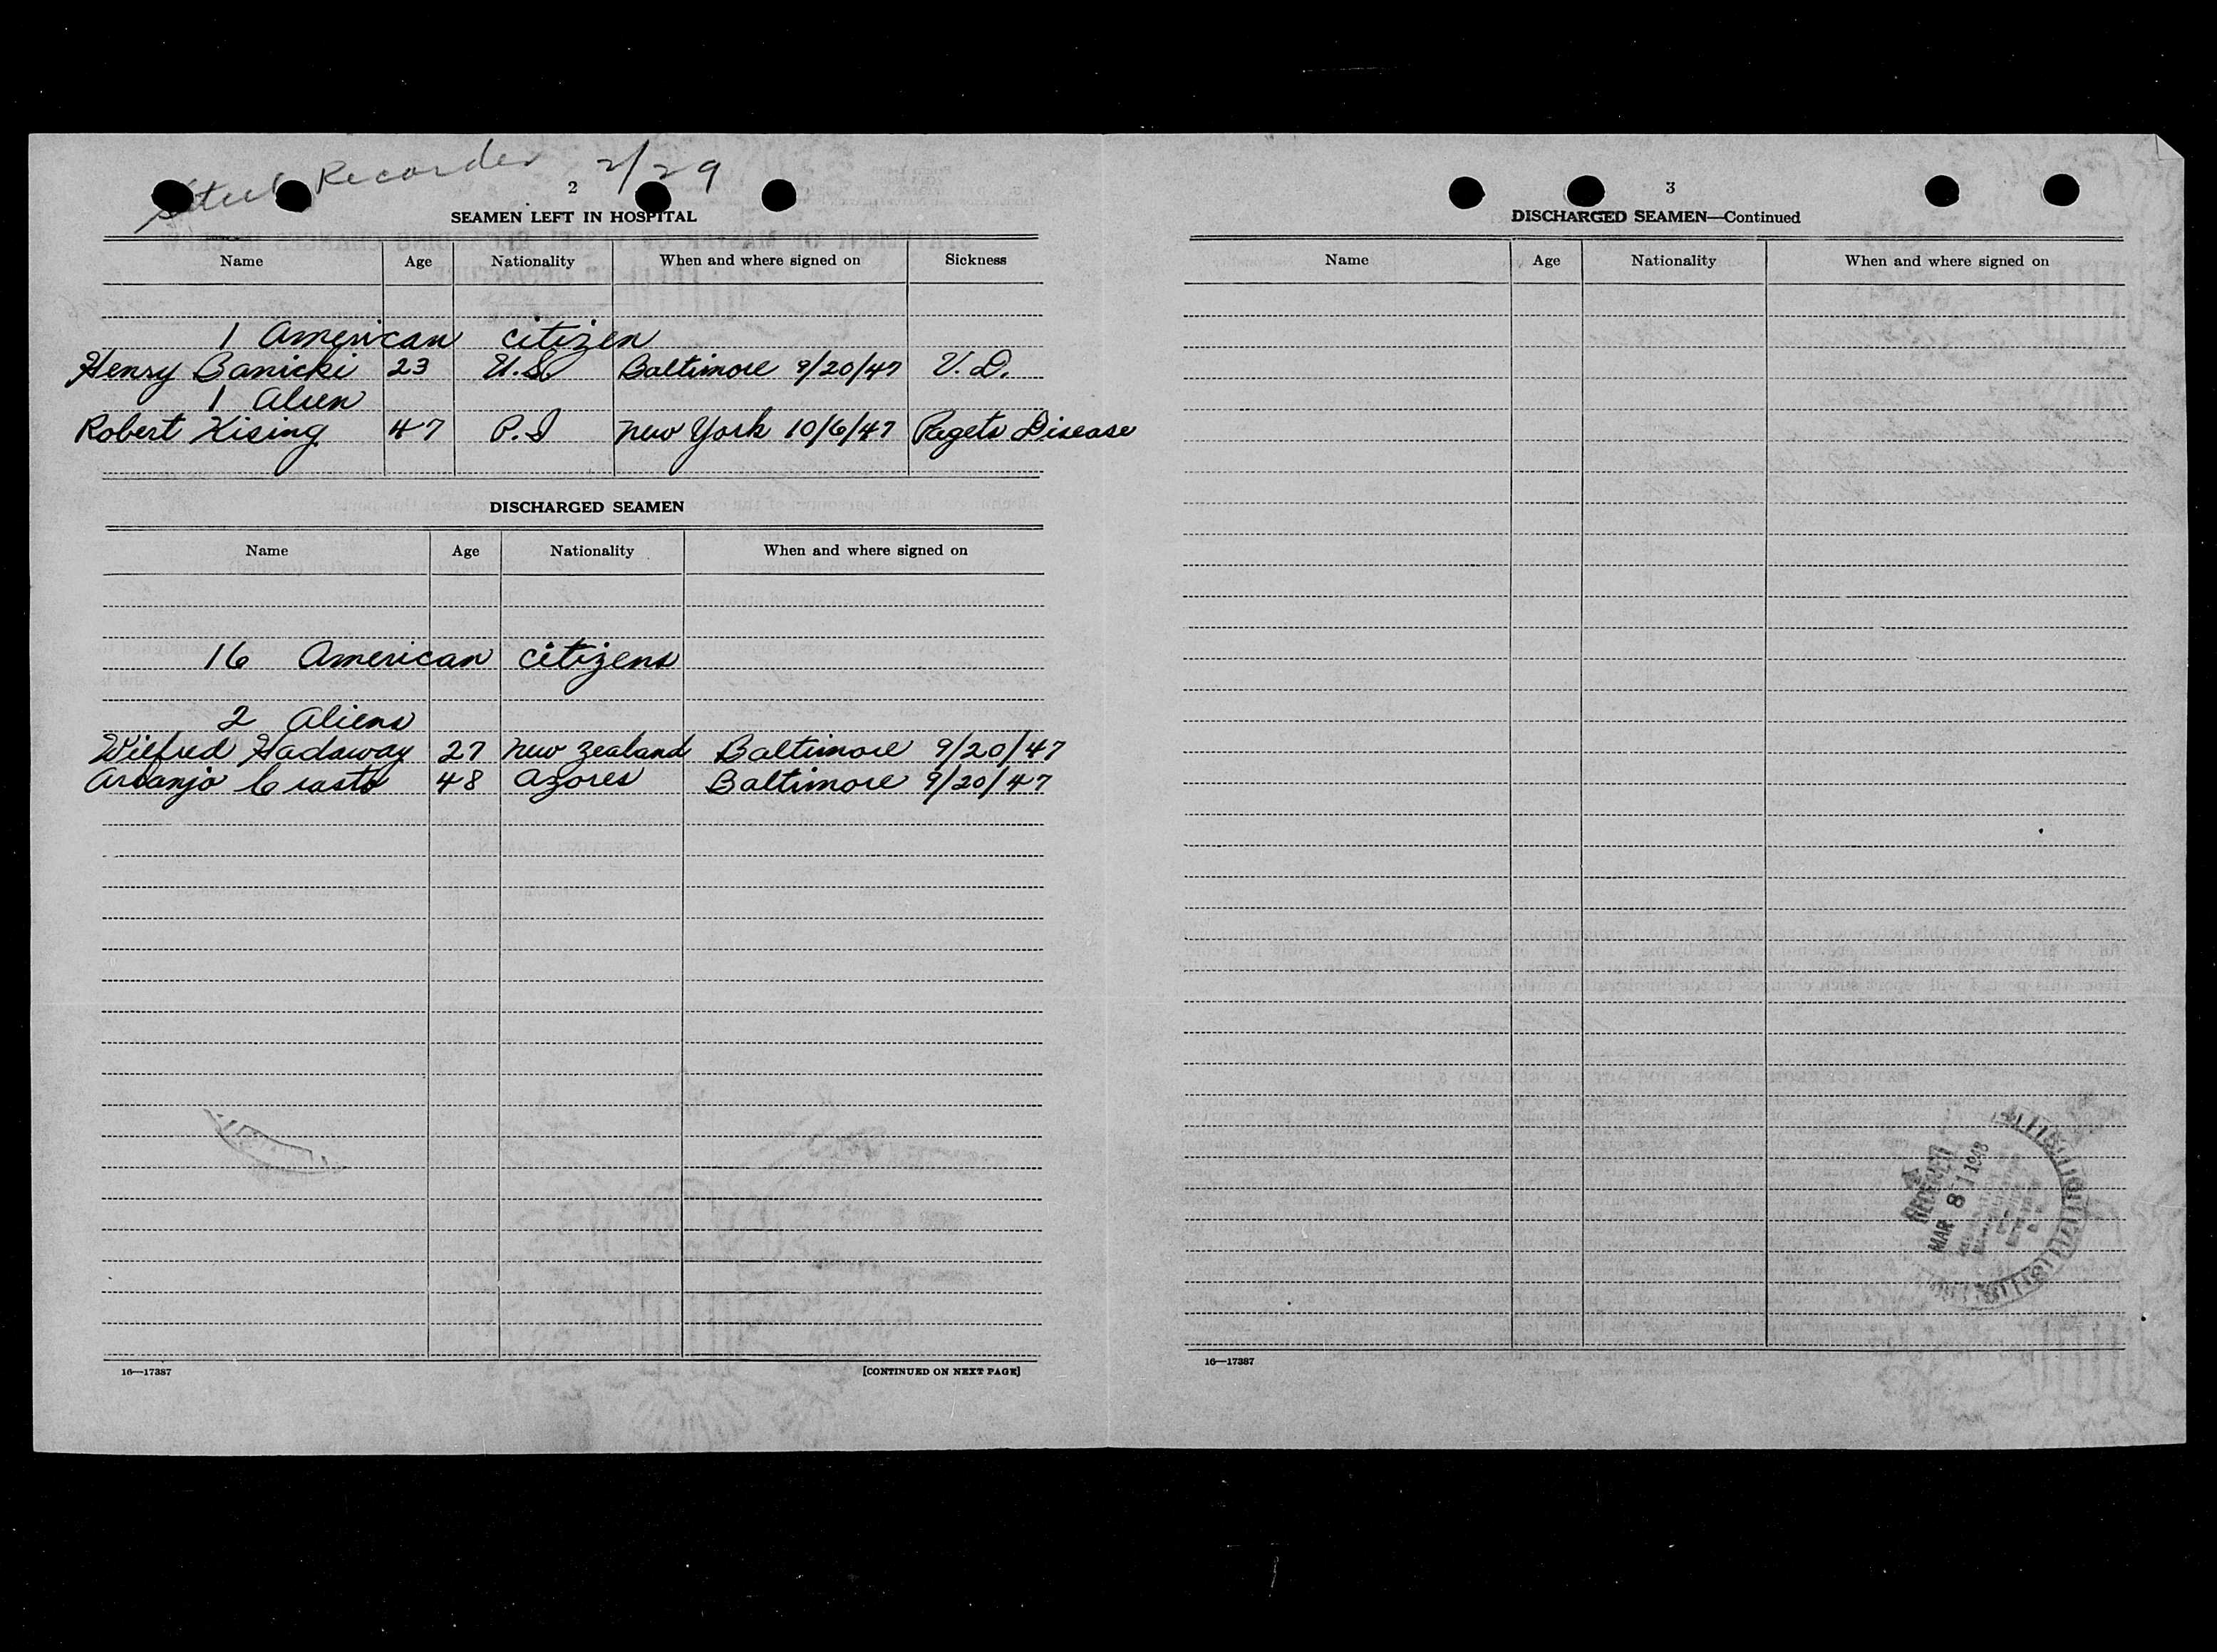 Steel Recorder 2/29
2
SEAMEN LEFT IN HOSPITAL
Name Age Nationality When and where signed on Sickness
1 American citizen
Henry Banicki 23 U.S. Baltimore 9/20/47 V.D.
1 Alien
Robert Kising 47 P.I New York 10/6/47 Pagets Disease
DISCHARGED SEAMEN
Name Age Nationality When and where signed on
16 American citizens
2 Aliens
Wilfred Hadaway 27 New Zealand Baltimore 9/20/47
Arcanjo Crasto 48 Azores Baltimore 9/20/47
16—17387 [CONTINUED ON NEXT PAGE]
3
DISCHARGED SEAMEN—Continued
Name Age Nationality When and where signed on
RECEIVED
MAR 8 1948
16—17387